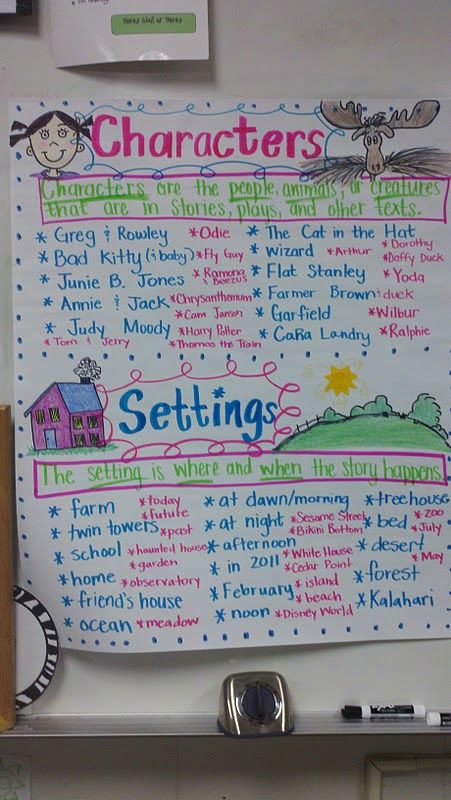 Characters
Characters are the people, animals, or creatures
that are in stories, plays, and other texts.
* Greg & Rowley *Odie * The Cat in the Hat
* Bad Kitty (& baby) *Fly Guy * wizard *Arthur *Dorothy
*Daffy Duck
* Junie B. Jones *Ramona & Beezus * Flat Stanley *Yoda
* Annie & Jack *Chrysanthemum * Farmer Brown & duck
*Cam Jansen * Garfield *Wilbur
* Judy Moody *Harry Potter * Cara Landry *Ralphie
*Tom & Jerry *Thomas the Train
Settings
The setting is where and when the story happens.
* farm *today * at dawn/morning * treehouse
*future
* twin towers *past * at night *Sesame Street * bed *zoo
*Bikini Bottom *July
* school *haunted house * afternoon * desert
*garden *White House *May
* home *observatory * in 2011 *Cedar Point * forest
* friend's house * February *island * Kalahari
*beach
* ocean *meadow * noon *Disney World